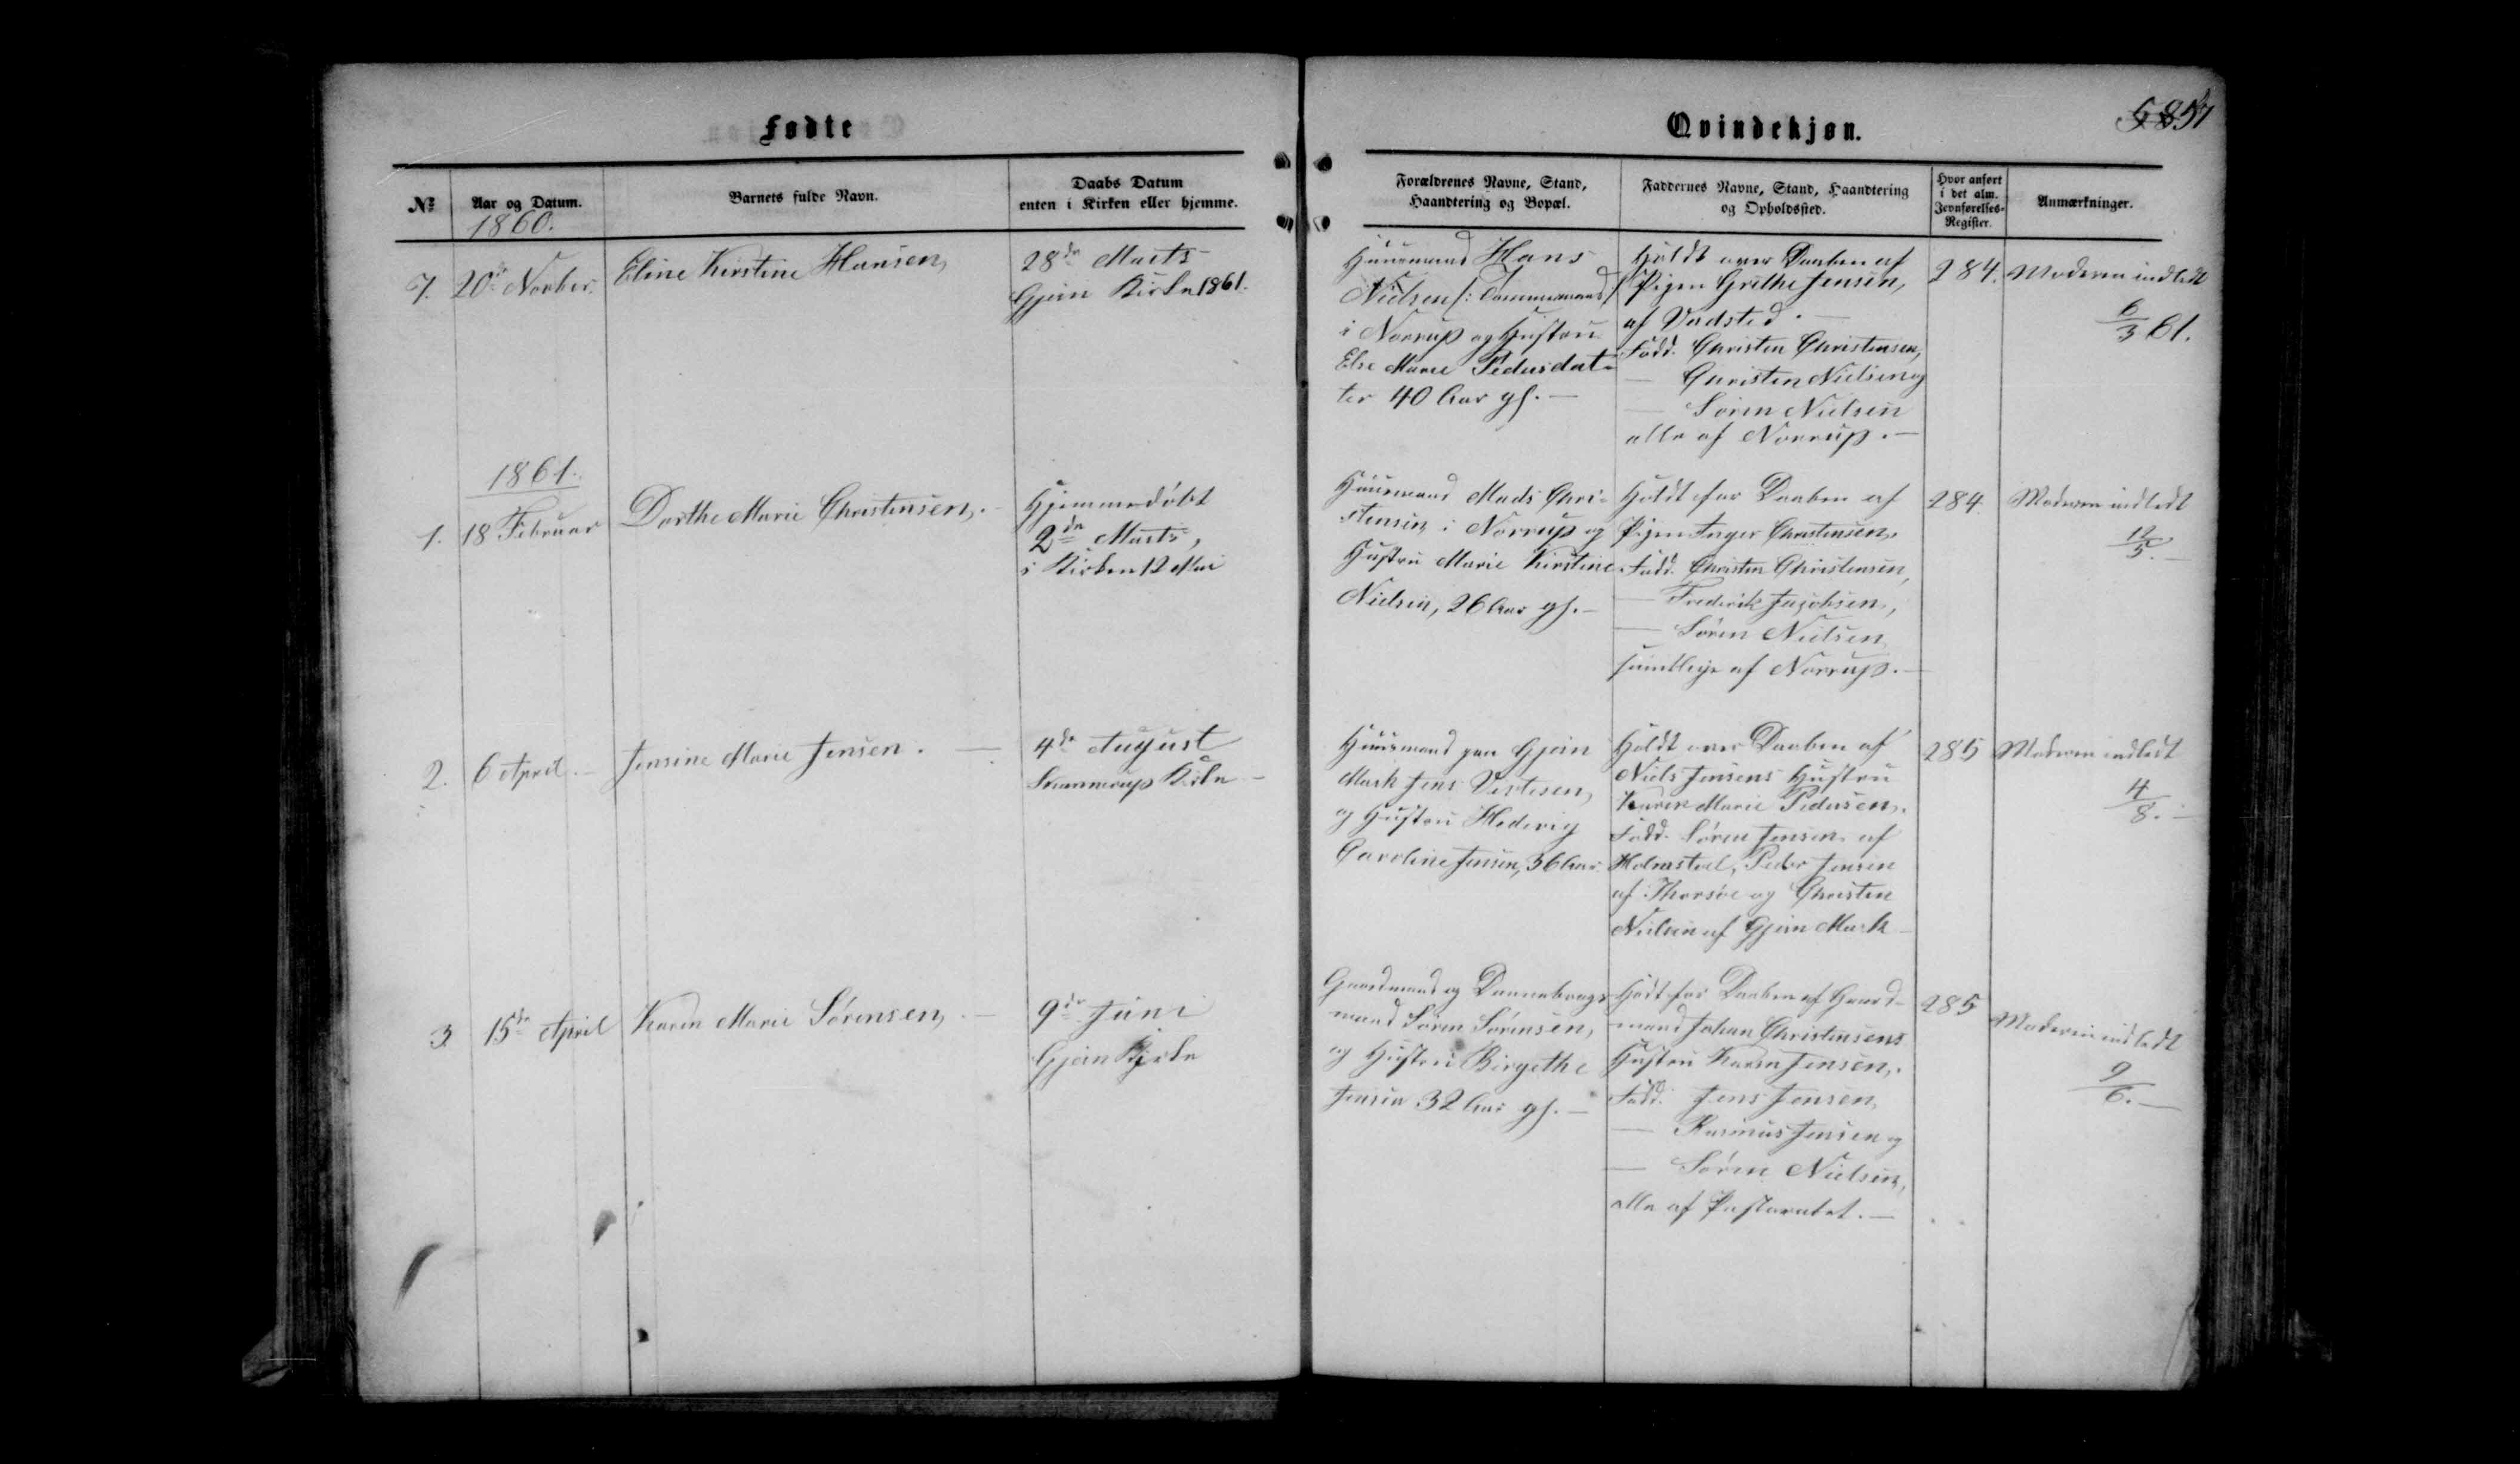 Fødte
Qvindekjøn.
57
№
Aar og Datum.
Barnets fulde Navn.
Daabs Datum
enten i Kirken eller hjemme.
Forældrenes Navne, Stand,
Haandtering og Bopæl.
Faddernes Navne, Stand, Haandtering
og Opholdssted.
Hvor anført
i det alm.
Jevnførelses-
Register.
Anmærkninger.
1860.
7.
20de Novber.
Eline Kirstine Hansen,
28de Marts
Gjern Kirke 1861.
Huusmand Hans
Nielsen
i Norrup og Hustru
Else Marie Pedersdat-
ter 40 Aar gl. —
Holdt over Daaben af
Pigen Grethe Jensen,
af Vadsted. —
Fadd. Christen Christensen,
— Christen Nielsen og
— Søren Nielsen
alle af Norrup. —
284.
Moderen indledt
6/3 61.
1861.
1.
18 Februar
Dorthe Marie Christensen. —
Hjemmedøbt
2den Marts,
i Kirken 12 Mai
Huusmand Mads Chri-
stensen i Norrup og
Hustru Marie Kirstine
Nielsen, 26 Aar gl. —
Holdt for Daaben af
Pigen Inger Christensen.
Fadd. Christen Christensen,
— Frederik Jacobsen,
— Søren Nielsen
samtlige af Norrup. —
284.
Moderen indledt
12/5. —
2.
6 April. —
Jensine Marie Jensen. —
4de August
Skannerup Kirke —
Huusmand paa Gjern
Mark Jens Vestesen,
og Hustru Hedevig
Caroline Jensen, 36 Aar.
Holdt over Daaben af
Niels Jensens Hustru
Karen Marie Pedersen.
Fadd. Søren Jensen af
Holmstol, Peder Jensen
af Thorsøe og Christen
Nielsen af Gjern Mark —
285
Moderen indledt
4/8. —
3
15de April
Karen Marie Sørensen, —
9de Juni
Gjern Kirke
Gaardmand og Dannebrogs-
mand Søren Sørensen,
og Hustru Birgethe
Jensen 32 Aar gl. —
Holdt for Daaben af Gaard-
mand Johan Christensens
Hustru Karen Jensen.
Fadd. Jens Jensen,
— Rasmus Jensen og
— Søren Nielsen,
alle af Pastoratet. —
285
Moderen indledt
9/6. —